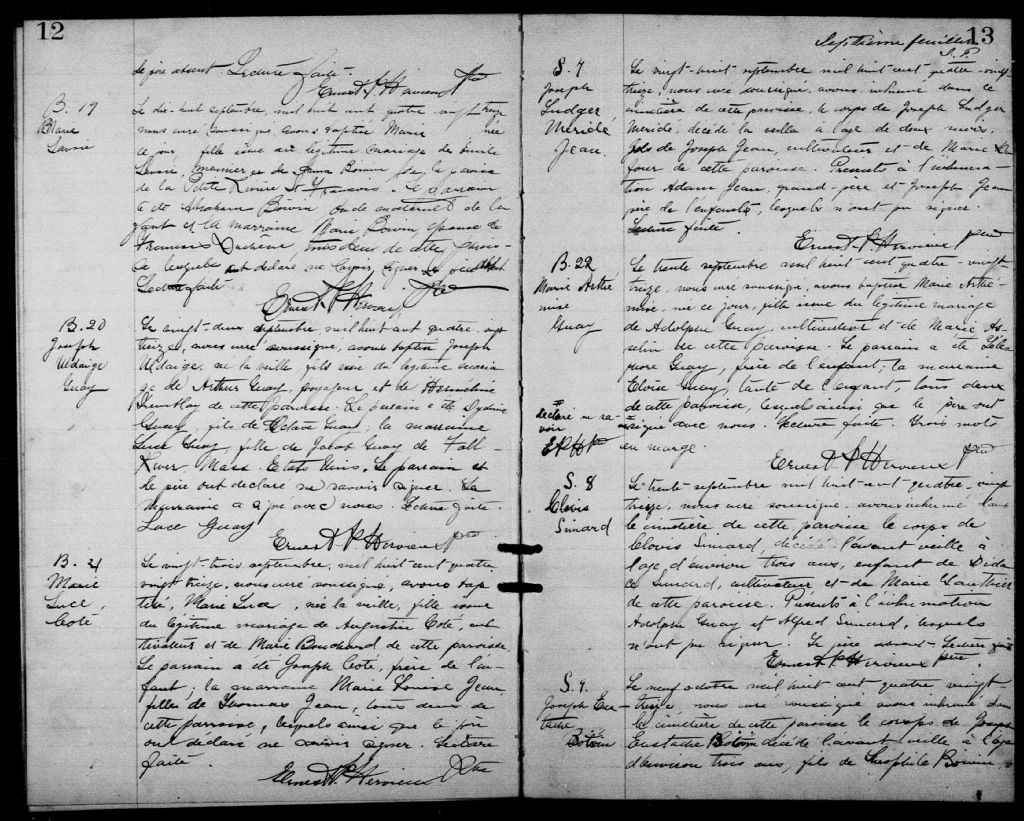 12
le père absent. Lecture faite.
Ernest P. Hervieux Ptre
B. 19
Marie
Lavoie
Le dix-huit septembre, mil huit cent quatre-vingt treize
nous curé soussigné, avons baptisé Marie née
ce jour fille issue du légitime mariage de
Lavoie, meunier et de Bouin de la paroisse
de la Petite Rivière St François. Le parrain
a été Abraham Bouin oncle maternel de l'en
fant et la marraine Marie Bouin épouse de
François Duchesne tous deux de cette parois-
se lesquels ont déclaré ne savoir signer Le père absent
Lecture faite.
Ernest P. Hervieux Ptre
B. 20
Joseph
Uldaige
Guay
Le vingt-deux septembre, mil huit cent quatre-vingt
treize, nous curé soussigné, avons baptisé Joseph
Uldaige, né la veille fils issu du légitime maria
ge de Arthur Guay, et de
Tremblay de cette paroisse. Le parrain a été
Guay, fils de Octave Guay; la marraine
Luce Guay, fille de Jacob Guay de Fall
River, Mass. Etats Unis. Le parrain et
le père ont déclaré ne savoir signer. La
marraine a signé avec nous. Lecture faite.
Luce Guay
Ernest P. Hervieux Ptre
B. 21
Marie
Luce,
Coté
Le vingt-trois septembre, mil huit cent quatre
vingt treize, nous curé soussigné, avons bap
tisé, Marie Luce, née la veille, fille issue
du légitime mariage de Augustin Coté, cul
tivateur et de Marie Bouchard de cette paroisse.
Le parrain a été Joseph Coté, frère de l'en-
fant; la marraine Marie Louise Jean
fille de Thomas Jean, tous deux de
cette paroisse, lesquels ainsi que le père
ont déclaré ne savoir signer. Lecture
faite.
Ernest P. Hervieux Ptre
13
Septième feuillet
S. 7
Joseph
Ludger
Méridé
Jean
Le vingt-huit septembre mil huit cent quatre-vingt
treize, nous curé soussigné, avons inhumé dans le
cimetière de cette paroisse, le corps de Joseph Ludger
Méridé, décédé la veille à l'age de deux mois,
fils de Joseph Jean, cultivateur et de Marie La
four de cette paroisse. Présents à l'inhuma-
tion Adam Jean, grand-père et Joseph Jean
père de l'enfant, lesquels n'ont pu signer.
Lecture faite.
Ernest P. Hervieux Ptre
B. 22
Marie Arthé
mise
Guay
Le trente septembre mil huit cent quatre-vingt
treize, nous curé soussigné, avons baptisé Marie Arthé-
mise, née ce jour, fille issue du légitime mariage
de Adolphe Guay, cultivateur et de Marie As
selin de cette paroisse. Le parrain a été Téles
phore Guay, frère de l'enfant, la marraine
Eloïse Guay, tante de l'enfant, tous deux
de cette paroisse, lesquels ainsi que le père ont
signé avec nous. Lecture faite. Trois mots
en marge
# Déclaré ne sa-
voir
E P H Ptre
Ernest P. Hervieux Ptre
S. 8
Clovis
Simard
Le trente septembre mil huit cent quatre-vingt
treize, nous curé soussigné, avons inhumé dans
le cimetière de cette paroisse le corps de
Clovis Simard, décédé l'avant veille à
l'age d'environ trois ans, enfant de Dida
ce Simard, cultivateur et de Marie Gauthier
de cette paroisse. Présents à l'inhumation
Adolphe Guay et Alfred Simard, lesquels
n'ont pu signer. Le père absent. Lecture faite
Ernest P. Hervieux Ptre
S. 9.
Joseph Eus
tache
Boivin
Le neuf octobre mil huit cent quatre vingt-
treize, nous curé soussigné avons inhumé dans
le cimetière de cette paroisse le corps de Joseph
Eustache Boivin décédé l'avant veille à l'age
d'environ trois ans, fils de Théophile Boivin,